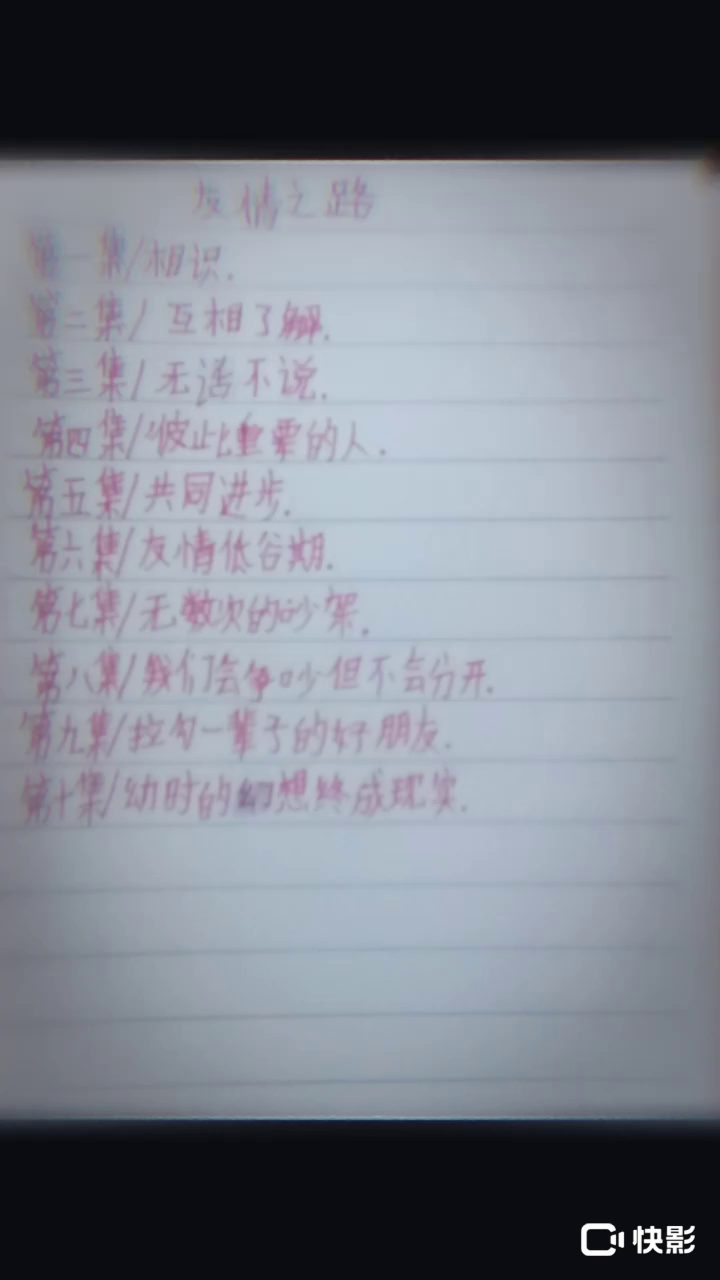 友情之路
第一集/相识.
第二集/互相了解.
第三集/无话不说.
第四集/彼此重要的人.
第五集/共同进步.
第六集/友情低谷期.
第七集/无数次的吵架.
第八集/我们会争吵但不会分开.
第九集/拉勾一辈子的好朋友.
第十集/幼时的幻想终成现实.
快影